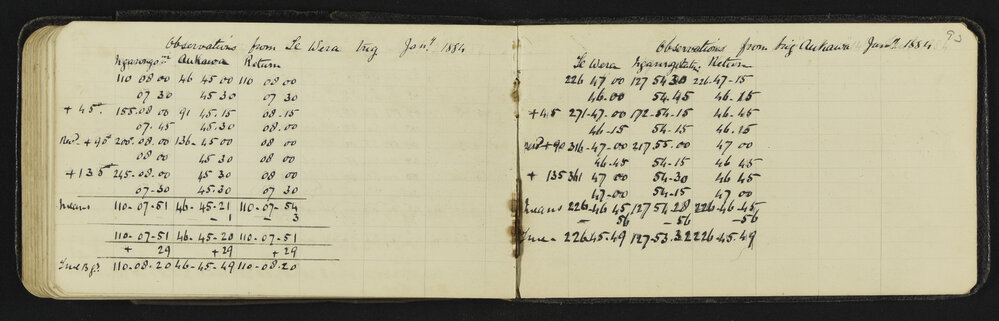 Observations from Te Wera trig Jany. 1884
Ngarongo Aukawa Return
110 08 00 46 45 00 110 08 00
07 30 45 30 07 30
+ 45° 155-08 00 91 45-15 08-15
07-45 45-30 08-00
+ 90° 208-08-00 136-45-00 08 00
08 00 45 30 08 00
+ 135° 245-08-00 45 30 08 00
07-30 45-30 07 30
Means 110-07-51 46-45-21 110-07-54
- 1 - 3
110-07-51 46-45-20 110-07-51
+ 29 +29 +29
True Bgs. 110-08-20 46-45-49 110-08-20
Observations from trig Aukawa Jany. 1884
Te Wera Return
226 47 00 127 54 30 226-47-15
46-00 54-45 46-15
+45 271-47-00 172-54-15 46-45
46-15 54-15 46-15
+90 316-47-00 217 55-00 47 00
46-45 54-15 46 45
+ 135 361 47 00 54-30 46 45
47-00 54-15 47 00
Means 226-46 45 127 54-28 226-46-45
- 56 -56 -56
True - 226 45-49 127-53-32 226-45-49